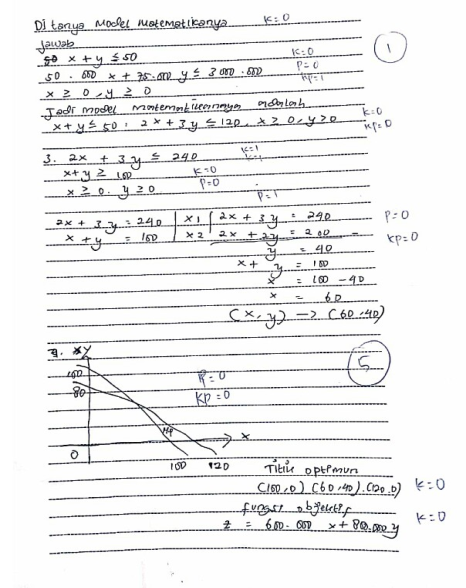 Ditanya Model Matematikanya K=0
Jawab
x + y ≤ 50 K=0
50.000 x + 75.000 y ≤ 3000.000 P=0
x ≥ 0, y ≥ 0 KP=1
1
Jadi model matematikannya adalah K=0
x+y ≤ 50 : 2x + 3y ≤ 120. x ≥ 0, y ≥ 0 KP=0
3. 2x + 3y ≤ 240 K=1
x+y ≥ 100 K=0
x ≥ 0. y ≥ 0 P=0
P=1
2x + 3y = 240 | x1 | 2x + 3y = 240 P=0
x + y = 100 | x2 | 2x + 2y = 200 - KP=0
y = 40
x + y = 100
x = 100 - 40
x = 60
(x, y) -> (60, 40)
4. XY
5
100 P=0
80 KP=0
HP
x
0
100 120
Titik optimun
(100,0) (60,40). (120.0) K=0
fungsi objektif
z = 600.000 x + 800.000 y K=0